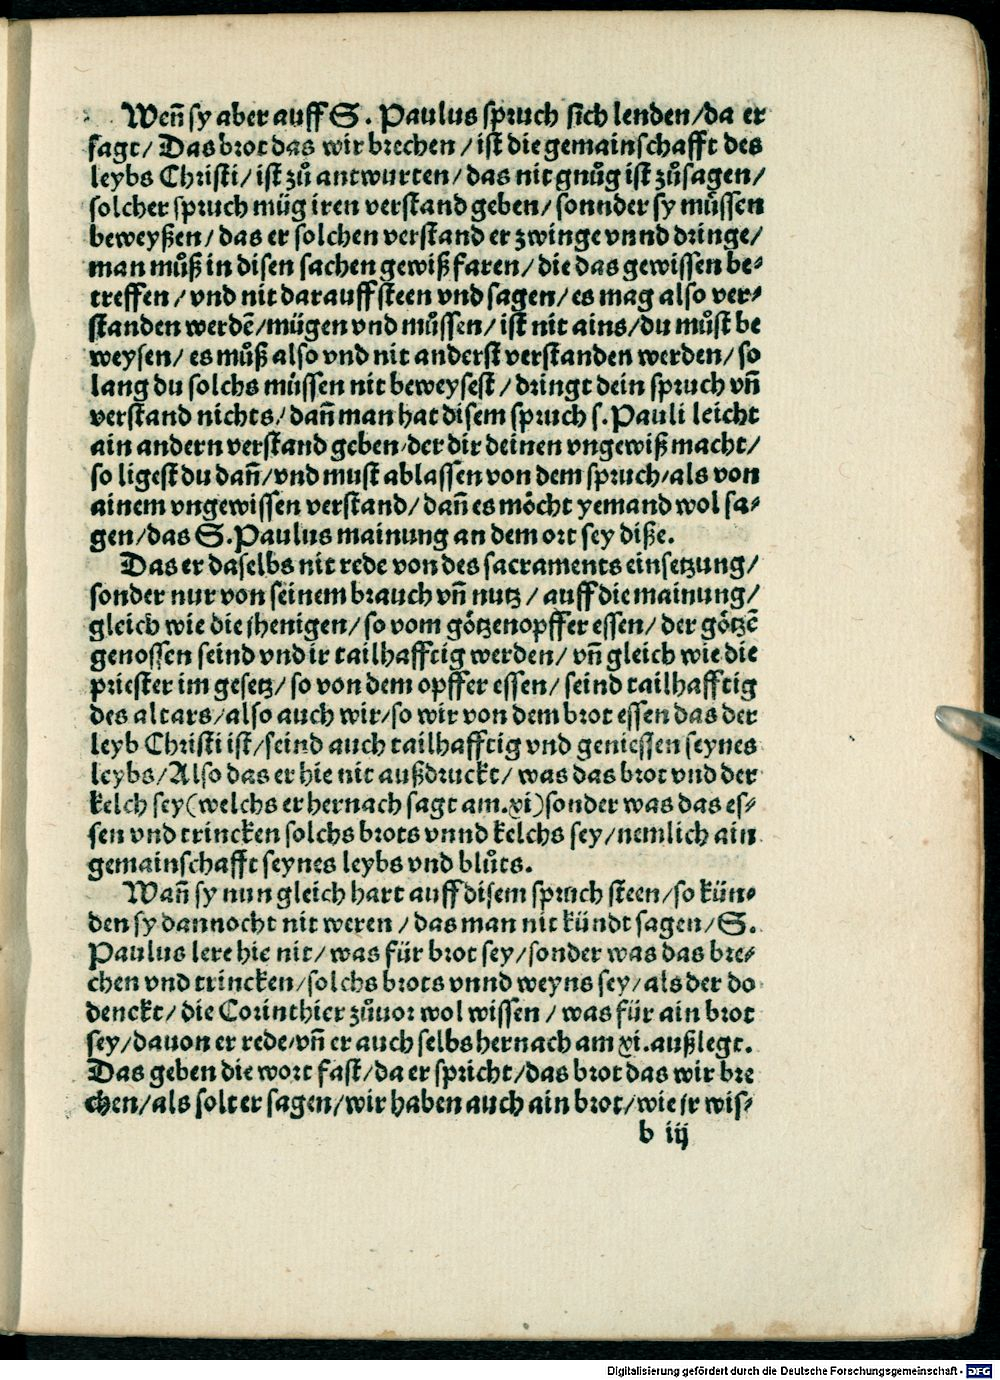 Weñ sy aber auff S. Paulus spruch sich lenden/da er
sagt/ Das brot das wir brechen/ ist die gemainschafft des
leybs Christi/ ist zů antwurten/ das nit gnůg ist zůsagen/
solcher spruch müg iren verstand geben/ sonnder sy můssen
beweyßen/ das er solchen verstand erzwinge vnnd dringe/
man můß in disen sachen gewiß faren/ die das gewissen be-
treffen/ vnd nit darauff steen vnd sagen/ es mag also ver-
standen werdē/mügen vnd můssen/ ist nit ains/du můst be
weysen/ es můß also vnd nit anderst verstanden werden/ so
lang du solchs müssen nit beweysest/ dringt dein spruch vñ
verstand nichts/ dañ man hat disem spruch s. Pauli leicht
ain andern verstand geben/der dir deinen vngewiß macht/
so ligest du dañ/vnd must ablassen von dem spruch/als von
ainem vngewissen verstand/ dañ es möcht yemand wol sa-
gen/das S. Paulus mainung an dem ort sey diße.
Das er daselbs nit rede von des sacraments einsetzung/
sonder nur von seinem brauch vñ nutz/ auff die mainung/
gleich wie die jhenigen/ so vom götzenopffer essen/ der götzē
genossen seind vnd ir tailhafftig werden/ vñ gleich wie die
priester im gesetz/ so von dem opffer essen/ seind tailhafftig
des altars/also auch wir/so wir von dem brot essen das der
leyb Christi ist/seind auch tailhafftig vnd geniessen seynes
leybs/Also das er hie nit außdruckt/ was das brot vnd der
kelch sey(welchs er hernach sagt am.xi)sonder was das es-
sen vnd trincken solchs brots vnnd kelchs sey/nemlich ain
gemainschafft seynes leybs vnd blůts.
Wañ sy nun gleich hart auff disem spruch steen/so kün-
den sy dannocht nit weren/ das man nit kündt sagen/ S.
Paulus lere hie nit/ was für brot sey/sonder was das bre-
chen vnd trincken/solchs brots vnnd weyns sey/als der do
denckt/ die Corinthier zůuor wol wissen/ was für ain brot
sey/dauon er rede/vñ er auch selbs hernach am xi.außlegt.
Das geben die wort fast/da er spricht/das brot das wir bre
chen/als solt er sagen/wir haben auch ain brot/wie ir wis-
b iij
Digitalisierung gefördert durch die Deutsche Forschungsgemeinschaft - DFG